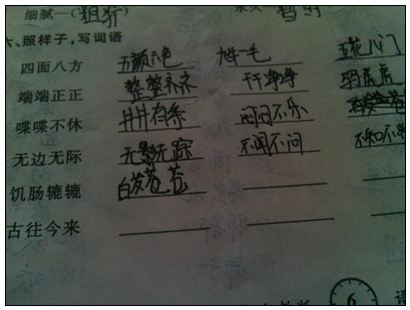 细腻—(粗犷)
六、照样子,写词语
四面八方 五颜六色 九牛一毛 五花八门
端端正正 整整齐齐 干干净净
喋喋不休 井井有条 闷闷不乐
无边无际 无影无踪 不闻不问 不知不
饥肠辘辘 白发苍苍
古往今来
6